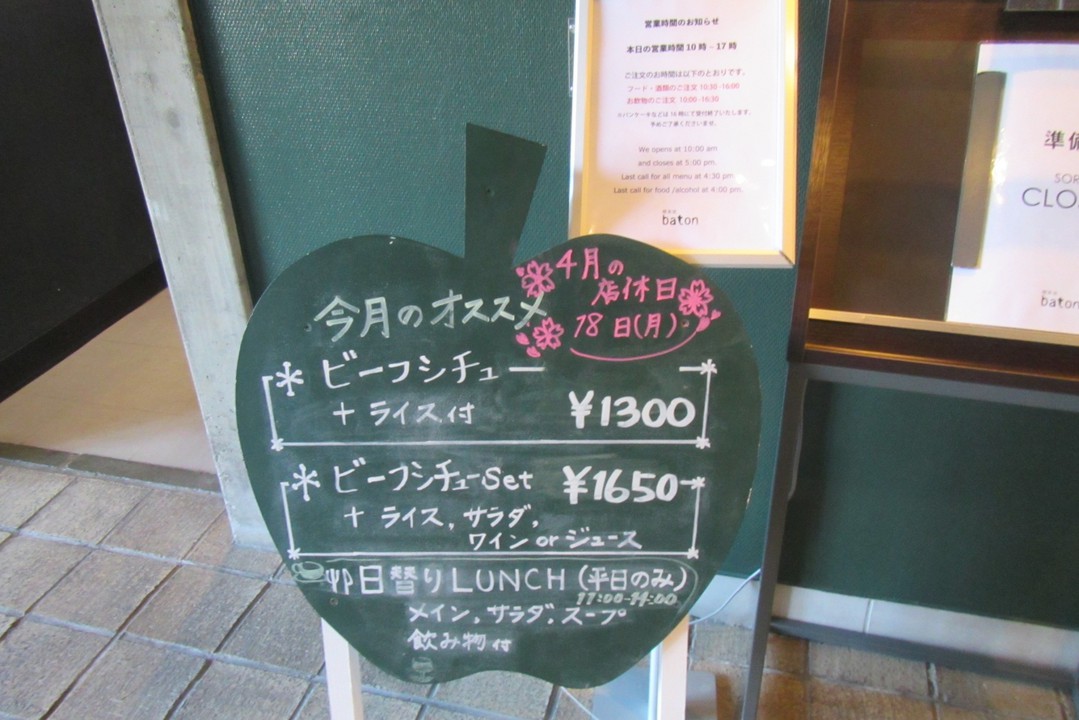 営業時間のお知らせ
本日の営業時間 10 時 – 17 時
ご注文のお時間は以下のとおりです。
フード・酒類のご注文 10:30 -16:00
お飲物のご注文 10:00 -16:30
※パンケーキなどは 16 時にて受付終了いたします。
予めご了承くださいませ。
We opens at 10:00 am
and closes at 5:00 pm.
Last call for all menu at 4:30 pm
Last call for food /alcohol at 4:00 pm.
baton
準備
SOR
CLO
baton
4月の
店休日
18日(月)
今月のオススメ
* ビーフシチュー
+ ライス付 ¥1300
* ビーフシチューSet ¥1650
+ ライス, サラダ,
ワイン or ジュース
日替りLUNCH (平日のみ)
11:00-14:00
メイン, サラダ, スープ
飲み物付